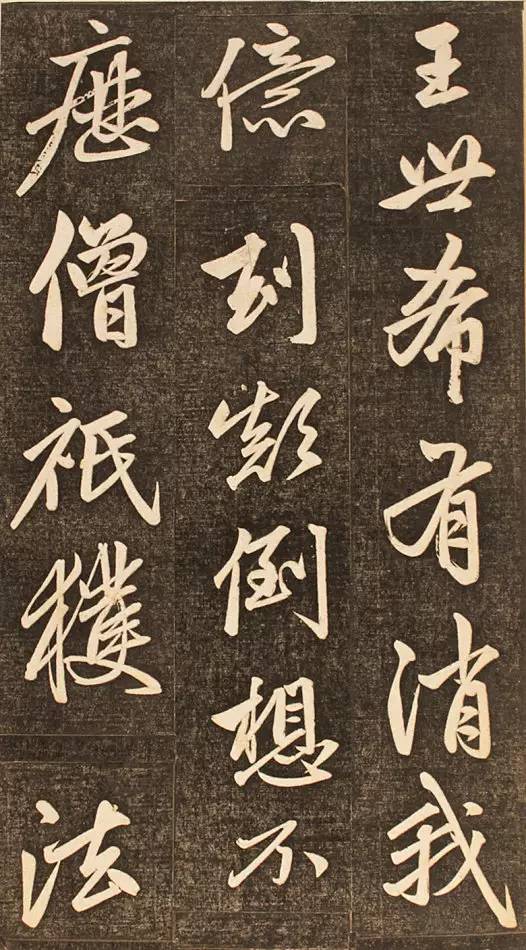 王世希有消我
億劫顛倒想不
歷僧祇獲法